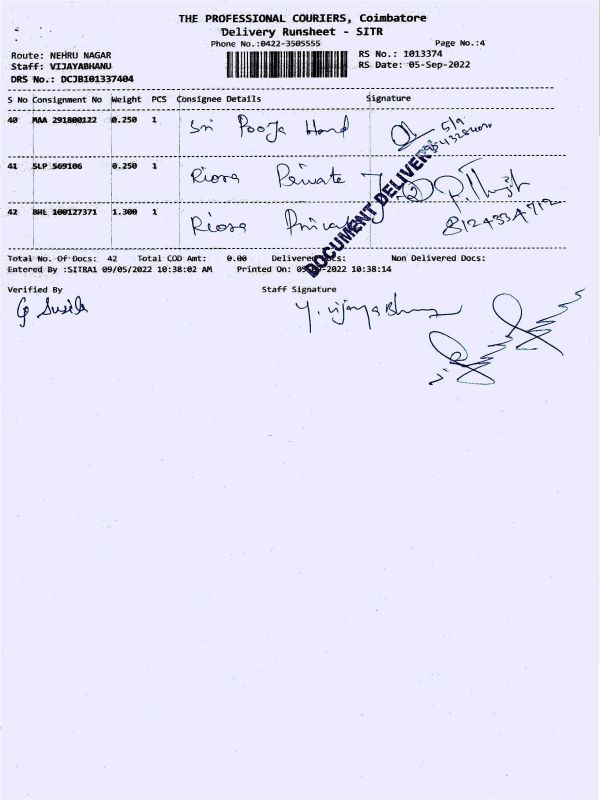 THE PROFESSIONAL COURIERS, Coimbatore
Delivery Runsheet - SITR
Phone No.:0422-3505555 Page No.:4
Route: NEHRU NAGAR RS No.: 1013374
Staff: VIJAYABHANU RS Date: 05-Sep-2022
DRS No.: DCJB101337404
S No Consignment No Weight PCS Consignee Details Signature
40 MAA 291800122 0.250 1 Sri Pooja Hand 5/9
41 SLP 569106 0.250 1 Riosa Private
42 BHL 100127371 1.300 1 Riosa Private 8124334712
DOCUMENT DELIVER
Total No. Of Docs: 42 Total COD Amt: 0.00 Delivered Docs: Non Delivered Docs:
Entered By :SITRA1 09/05/2022 10:38:02 AM Printed On: 05- -2022 10:38:14
Verified By Staff Signature
G Susila Y. Vijayabhanu